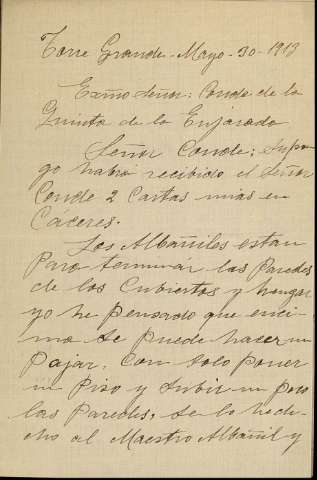 Torre Grande - Mayo - 30 - 1913
Exmo Señor: Conde de la
Quinta de la Enjarada
Señor Conde: Supon
go habra recibido el Señor
Conde 2 Cartas mias en
Caceres.
Los Albañiles estan
para terminar las Paredes
de los Cubiertos y
yo he pensado que enci
ma se puede hacer un
Pajar. Con solo poner
un Piso y subir un poco
las Paredes, se lo he di
cho al Maestro Albañil y